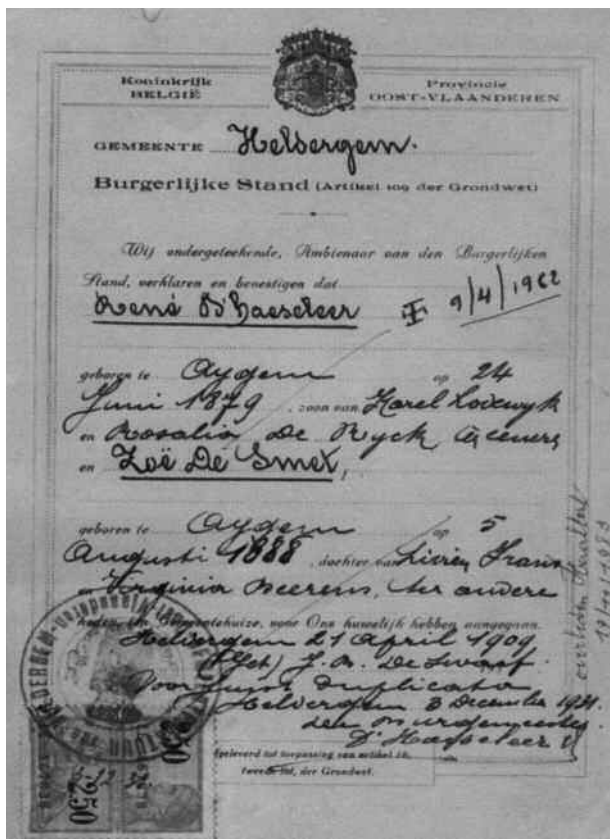 Koninkrijk
BELGIË
Provincie
OOST-VLAANDEREN
GEMEENTE Heldergem.
Burgerlijke Stand (Artikel 109 der Grondwet)
Wij ondergeteekende, Ambtenaar van den Burgerlijken
Stand, verklaren en bevestigen dat
René D'haeseleer 9/4/1962
geboren te Aygem op 24
Juni 1879, zoon van Karel Lodewyk
en Rosalia De Ryck
en Zoë De Smet,
geboren te Aygem op 5
Augusti 1888, dochter van Livien Frans
en Virginia Beerens, ter andere
heden, ten Gemeentehuize, voor Ons huwelijk hebben aangegaan.
Heldergem 21 April 1909
(Get) J. B. De Swaef
Voor Duplicata
Heldergem 3 December 1931.
den Burgemeester
D'Haeseleer
Afgeleverd tot toepassing van artikel 16,
tweede lid, der Grondwet.
overleden
2,50
50